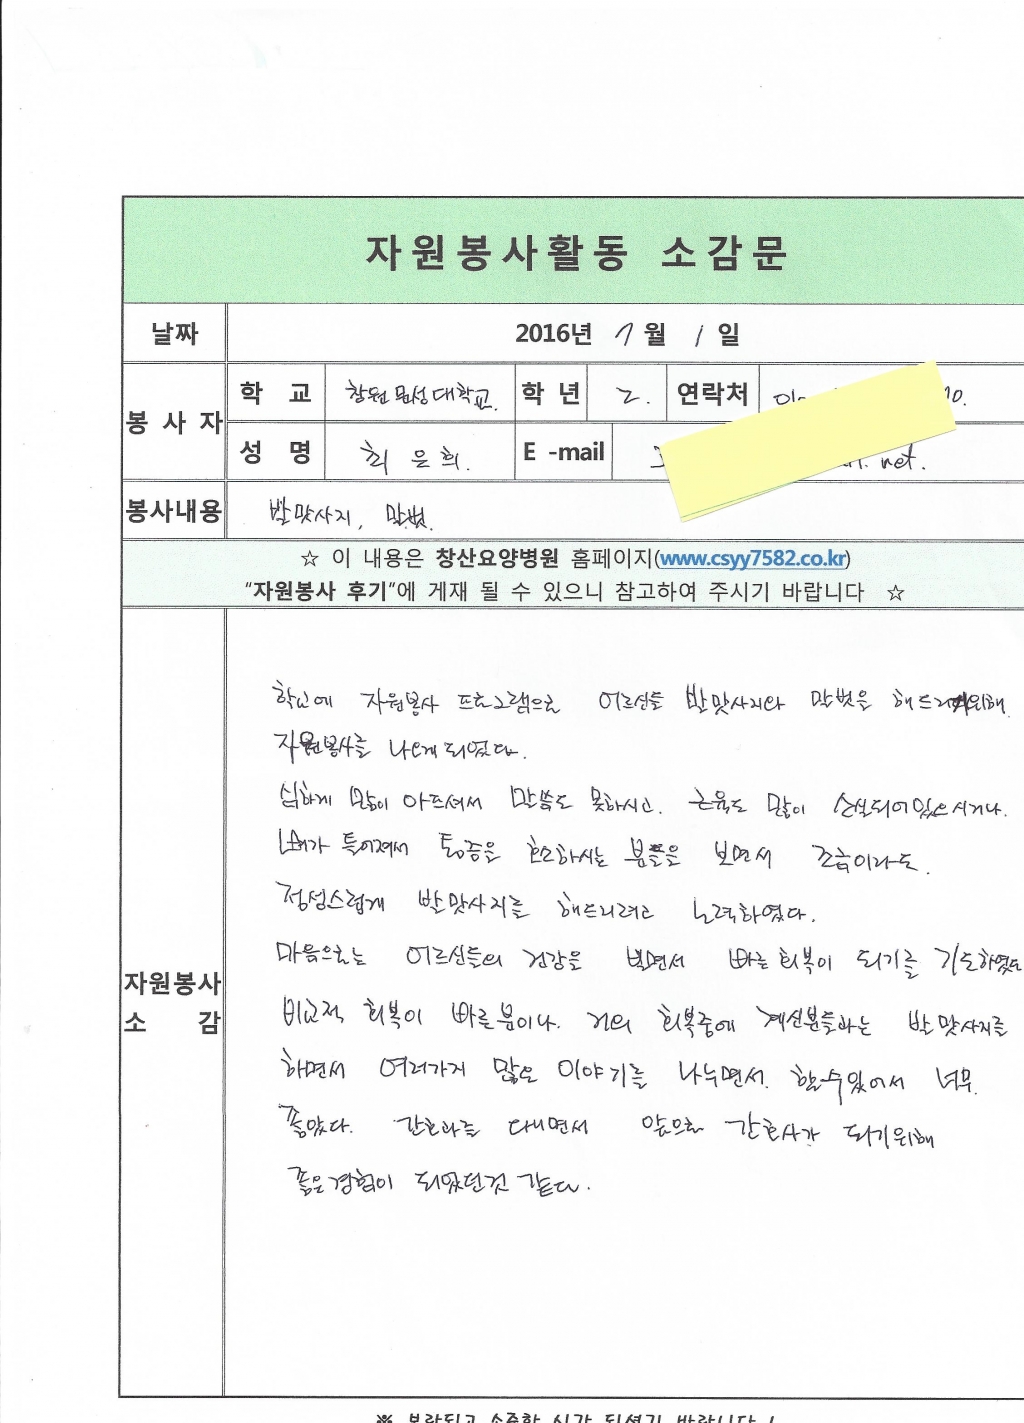 자원봉사활동 소감문
날짜 2016년 7월 1일
봉사자 학 교 창원문성대학교. 학년 2. 연락처 010.
성 명 최은희. E -mail .net.
봉사내용 발맛사지, 말벗.
☆ 이 내용은 창산요양병원 홈페이지(www.csyy7582.co.kr)
"자원봉사 후기"에 게재 될 수 있으니 참고하여 주시기 바랍니다 ☆
자원봉사 소 감
학교에 자원봉사 프로그램으로 어르신들 발맛사지와 말벗을 해드리기위해
자원봉사를 나오게되었다.
심하게 많이 아프셔서 말씀도 못하시고. 근육도 많이 손실되어있으시거나.
나이가 들어져서 통증을 호소하시는 분들을 보면서 조금이라도.
정성스럽게 발맛사지를 해드리려고 노력하였다.
마음으로는 어르신들의 건강을 빌면서 빠른회복이 되기를 기도하였고
비교적 회복이 빠른분이나. 거의 회복중에 계신분들과는 발맛사지를
하면서 여러가지 많은 이야기를 나누면서. 할수있어서 너무.
좋았다. 간호과를 다니면서 앞으로 간호사가 되기위해
좋은경험이 되었던것 같다.
※ 보람되고 소중한 시간 되셨기 바랍니다 !